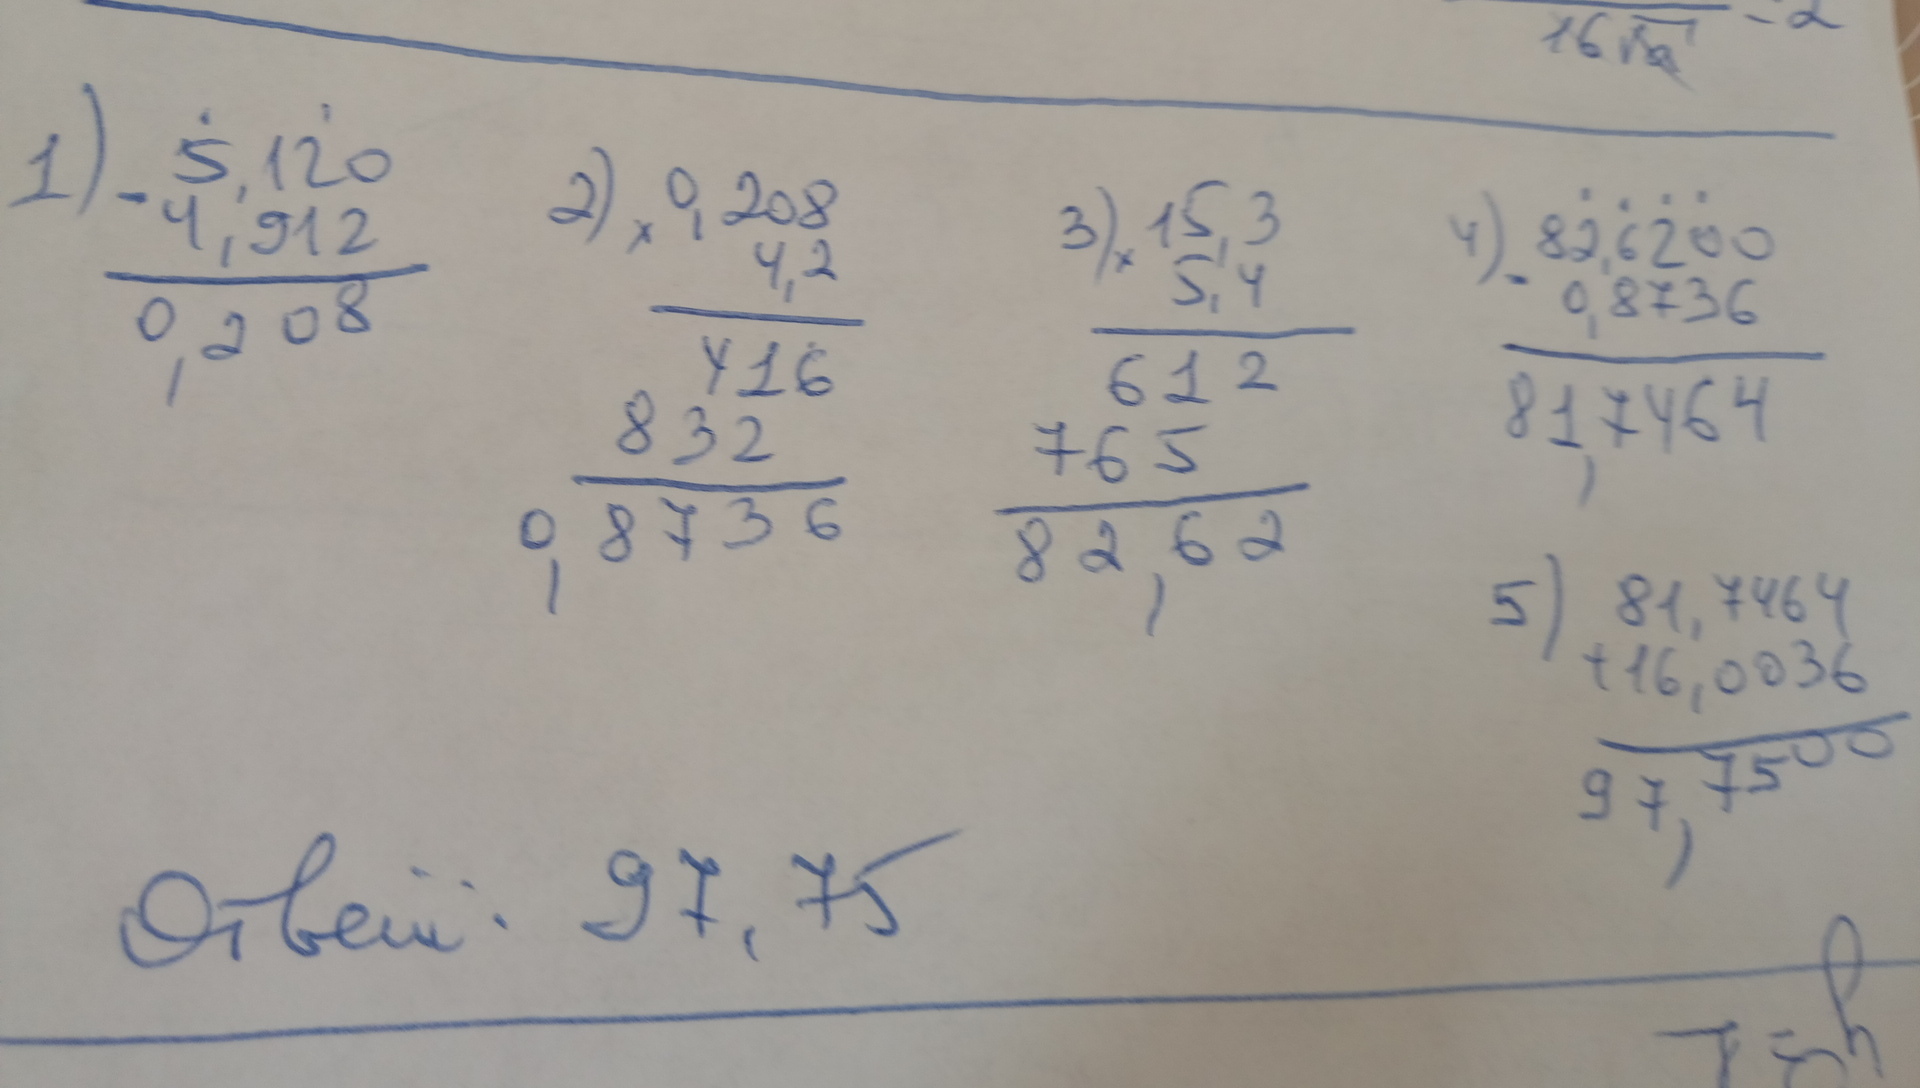 16
- 2
1) - 5,120
4,912
0,208
2) x 0,208
4,2
416
832
0,8736
3) x 15,3
5,4
612
765
82,62
4) - 82,6200
0,8736
81,7464
5) 81,7464
+16,0036
97,7500
Ответ: 97,75